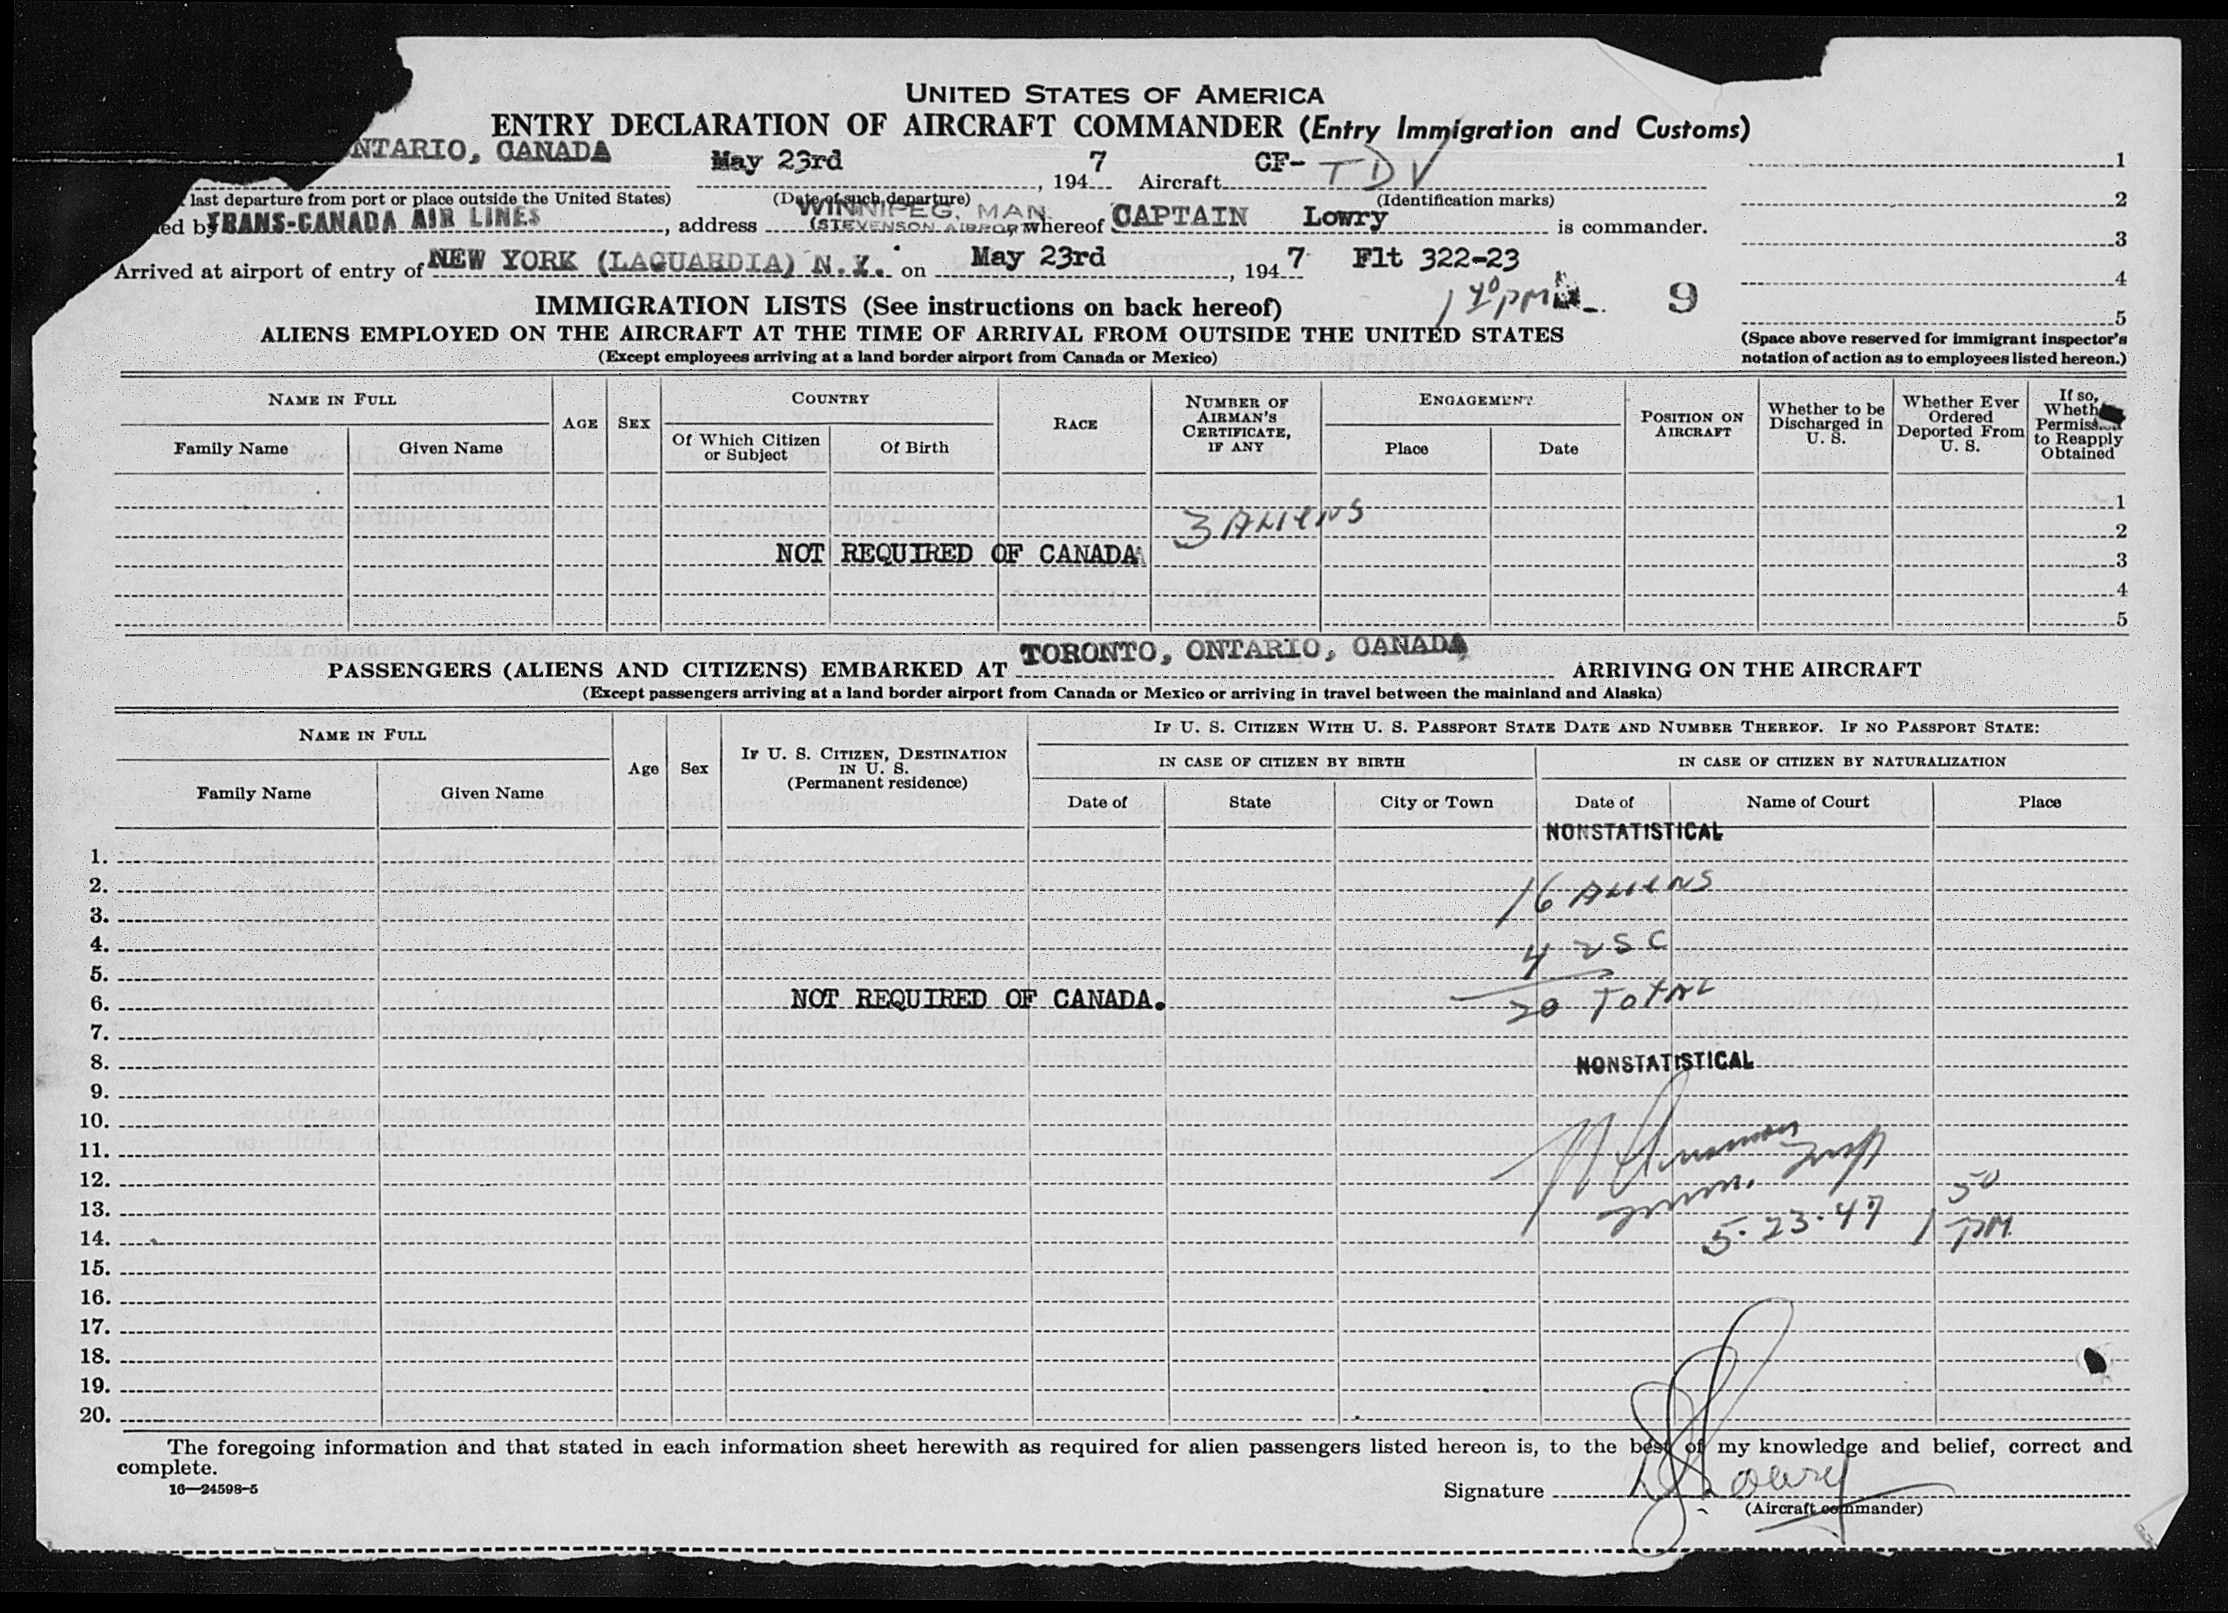 UNITED STATES OF AMERICA
ENTRY DECLARATION OF AIRCRAFT COMMANDER (Entry Immigration and Customs)
NTARIO, CANADA May 23rd , 1947 Aircraft CF- TDV 1
last departure from port or place outside the United States) (Date of such departure) (Identification marks) 2
ed by TRANS-CANADA AIR LINES , address WINNIPEG, MAN. (STEVENSON whereof CAPTAIN Lowry is commander. 3
Arrived at airport of entry of NEW YORK (LAGUARDIA) N.Y. on May 23rd , 1947 Flt 322-23 4
IMMIGRATION LISTS (See instructions on back hereof) 1 40 PM 9 5
ALIENS EMPLOYED ON THE AIRCRAFT AT THE TIME OF ARRIVAL FROM OUTSIDE THE UNITED STATES
(Except employees arriving at a land border airport from Canada or Mexico)
(Space above reserved for immigrant inspector's
notation of action as to employees listed hereon.)
NAME IN FULL
Family Name Given Name
AGE SEX
COUNTRY
Of Which Citizen or Subject Of Birth
RACE
NUMBER OF AIRMAN'S CERTIFICATE, IF ANY
ENGAGEMENT
Place Date
POSITION ON AIRCRAFT
Whether to be Discharged in U. S.
Whether Ever Ordered Deported From U. S.
If so, to Reapply Obtained
1
3 ALIENS 2
NOT REQUIRED OF CANADA 3
4
5
PASSENGERS (ALIENS AND CITIZENS) EMBARKED AT TORONTO, ONTARIO, CANADA ARRIVING ON THE AIRCRAFT
(Except passengers arriving at a land border airport from Canada or Mexico or arriving in travel between the mainland and Alaska)
NAME IN FULL
Family Name Given Name
Age Sex
IF U. S. CITIZEN, DESTINATION IN U. S. (Permanent residence)
IF U. S. CITIZEN WITH U. S. PASSPORT STATE DATE AND NUMBER THEREOF. IF NO PASSPORT STATE:
IN CASE OF CITIZEN BY BIRTH IN CASE OF CITIZEN BY NATURALIZATION
Date of State City or Town Date of Name of Court Place
NONSTATISTICAL
1.
2. 16 ALIENS
3.
4. 4 USC
5.
6. NOT REQUIRED OF CANADA. 20 TOTAL
7.
8. NONSTATISTICAL
9.
10.
11.
12.
13. 5-23-47 1 50 PM
14.
15.
16.
17.
18.
19.
20.
The foregoing information and that stated in each information sheet herewith as required for alien passengers listed hereon is, to the best of my knowledge and belief, correct and
complete.
16—24598-5
Signature Lowry
(Aircraft commander)